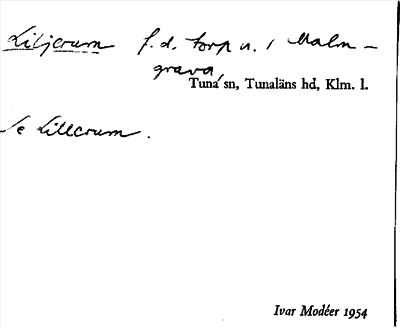 Liljerum f. d. torp u. / Malm-
grava,
Tuna sn, Tunaläns hd, Klm. l.
Se Lillerum.
Ivar Modéer 1954